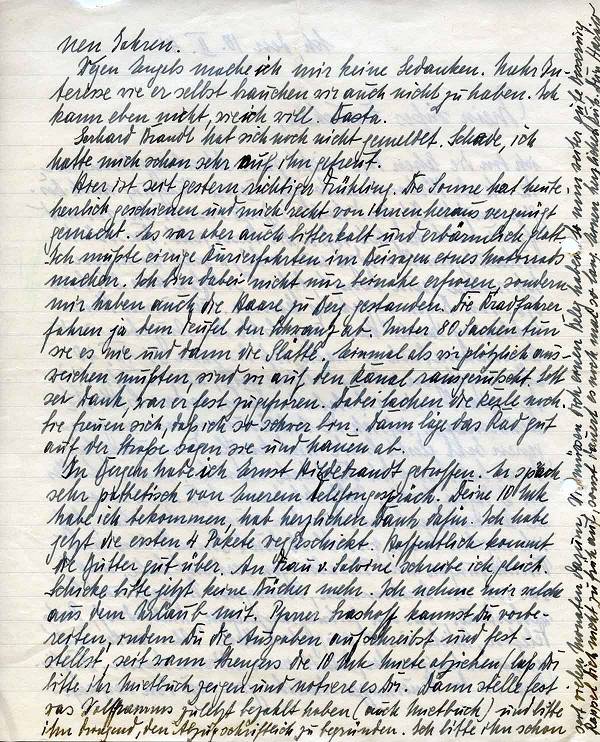 nen Jahren.
Wegen Engels mache ich mir keine Gedanken. Mehr In-
teresse wie er selbst brauchen wir auch nicht zu haben. Ich
kann eben nicht, wie ich will. Basta.
Gerhard Brandt hat sich noch nicht gemeldet. Schade, ich
hatte mich schon sehr auf ihn gefreut.
Hier ist seit gestern richtiger Frühling. Die Sonne hat heute
herrlich geschienen und mich recht von Innen heraus vergnügt
gemacht. Es war aber auch bitterkalt und erbärmlich glatt.
Ich mußte einige Kurierfahrten im Beiwagen eines Motorrads
machen. Ich bin dabei nicht nur beinahe erfroren, sondern
mir haben auch die Haare zu Berg gestanden. Die Kradfahrer
fahren ja dem Teufel den Schwanz ab. Unter 80 Sachen tun
sie es nie und dann die Glätte. Einmal als wir plötzlich aus-
weichen mußten, sind wir auf den Kanal rausgerutscht. Gott
sei Dank, war er fest zugefroren. Dabei lachen die Kerle noch.
Sie freuen sich, daß ich so schwer bin. Dann läge das Rad gut
auf der Straße sagen sie und hauen ab.
In habe ich Ernst Hildebrandt getroffen. Er sprach
sehr pathetisch von Eurem Telefongespräch. Deine 10 Mk
habe ich bekommen, hab herzlichen Dank dafür. Ich habe
jetzt die ersten 4 Pakete weggeschickt. Hoffentlich kommt
die Butter gut über. An Frau v. schreibe ich gleich.
Schicke bitte jetzt keine Bücher mehr. Ich nehme mir welche
aus dem Urlaub mit. Pfarrer kannst Du vorbe-
reiten, indem Du die Ausgaben aufschreibst und fest-
stellst, seit wann die 10 Mk Miete abziehen (laß Dir
bitte ihr Mietbuch zeigen und notiere es Dir. Dann stelle fest
was zuletzt bezahlt haben (auch Mietbuch) und bitte
ihn dringend, den Abzug schriftlich zu begründen. Ich bitte ihn schon
seit vielen Monaten darum. Wir müssen doch einen Beleg haben